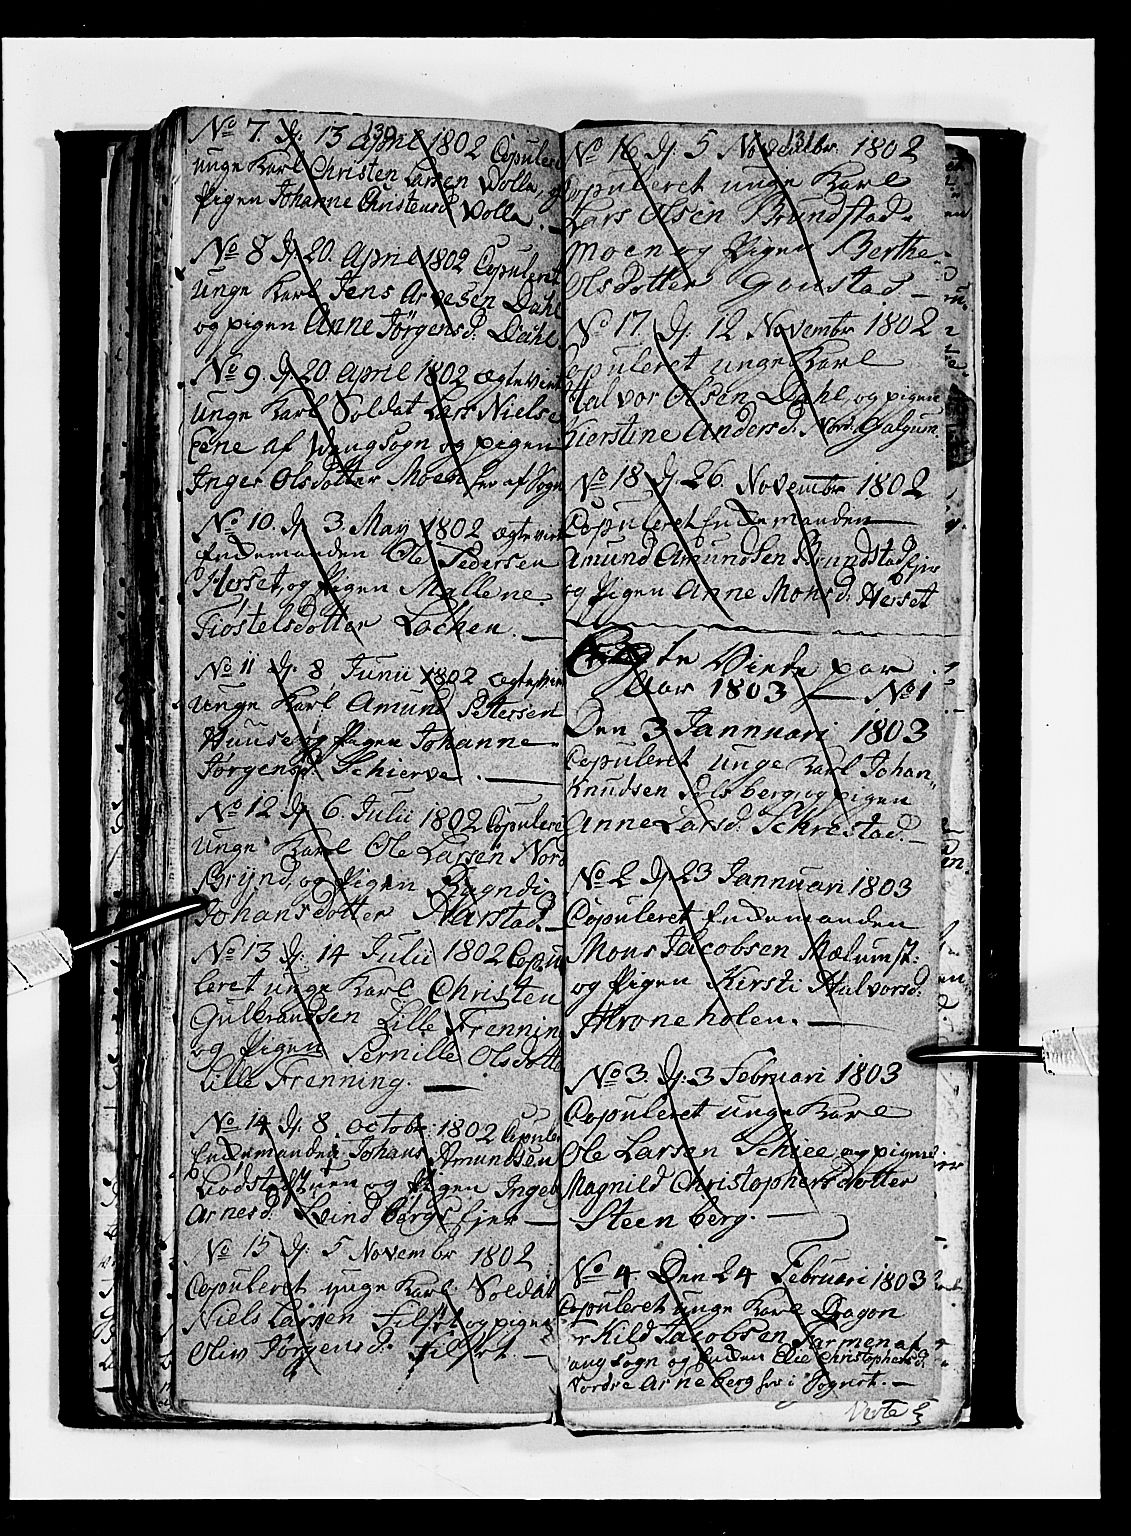 130
No 7. D. 13 April 1802 Copuleret
unge Karl Christen Larsen Volla, og
Pigen Johanne Christensd. Volla.
No 8 D. 20. April 1802 Copuleret
unge Karl Jens Arvesen Dahl
og pigen Anne Jörgensd. Dahl
No 9. D. 20. April 1802 ægtevi
unge Karl Soldat Lars Nielse
af Sogn og pigen
Inger Olsdotter Moen her af Sogn
No 10. D. 3. May 1802 ægtevi
Enckemanden Ole Pedersen
Herset, og Pigen Mallene
Tiöstelsdotter Löcken.
No 11 D. 8 Junii 1802 ægtevi
unge Karl Amund Pettersen
Huuse og Pigen Johanne
Jörgensd. Schierve.
No 12 D. 6. Julii 1802 Copulere
unge Karl Ole Larsen Nord
Brynd, og Pigen Ragndi
Johansdotter Harstad.
No 13 D. 14 Julii 1802 Copu
leret unge Karl Christen
Gulbrandsen Lille Frennin
og Pigen Pernille Olsdotte
Lille Frenning.
No 14 D. 8. octobr. 1802 Copule
Enckemanden Johans Amundsen
og Pigen Ingeb
Arnesd. Lindbergsejer
No 15 D. 5 Novembr 1802
Copuleret unge Karl Soldat
Niels Larsen Filset og pigen
Oliv Jörgensd. Filset.
131
No 16 D. 5 Novembr. 1802
Copuleret unge Karl
Lars Olsen Brundstad
moen og Pigen Berthe
Olsdotter Goustad
No 17. D. 12 Novembr 1802
Copuleret unge Karl
Halvor Olsen Dahl, og pigen
Kierstine Andersd. Nord
No 18 D. 26. Novembr 1802
Copuleret Enckemanden
Amund Amundsen Brundstadejer
og Pigen Anne Monsd. Herset
Ægte Viede par
Aar 1803 — No 1
Den 3 Jannuari 1803
Copuleret unge Karl Johan
Knudsen berg, og pigen
Anne Larsd. Schrestad.
No 2 D. 23 Jannuari 1803
Copuleret Enckemanden
Mons Jacobsen Mælumst:
og Pigen Kirsti Halvorsd:
Throneholen.
No 3. D. 3 Februari 1803
Copuleret unge Karl
Ole Larsen Schiee, og pigen
Magnild Christophersdotter
Steenberg.
No 4. Den 24 Februari 1803
Copuleret unge Karl Dragon
Jacobsen Farmen af
Vang Sogn og Enken Elie Christophersd.
Nordre Arneberg her i Sognet.
Verte